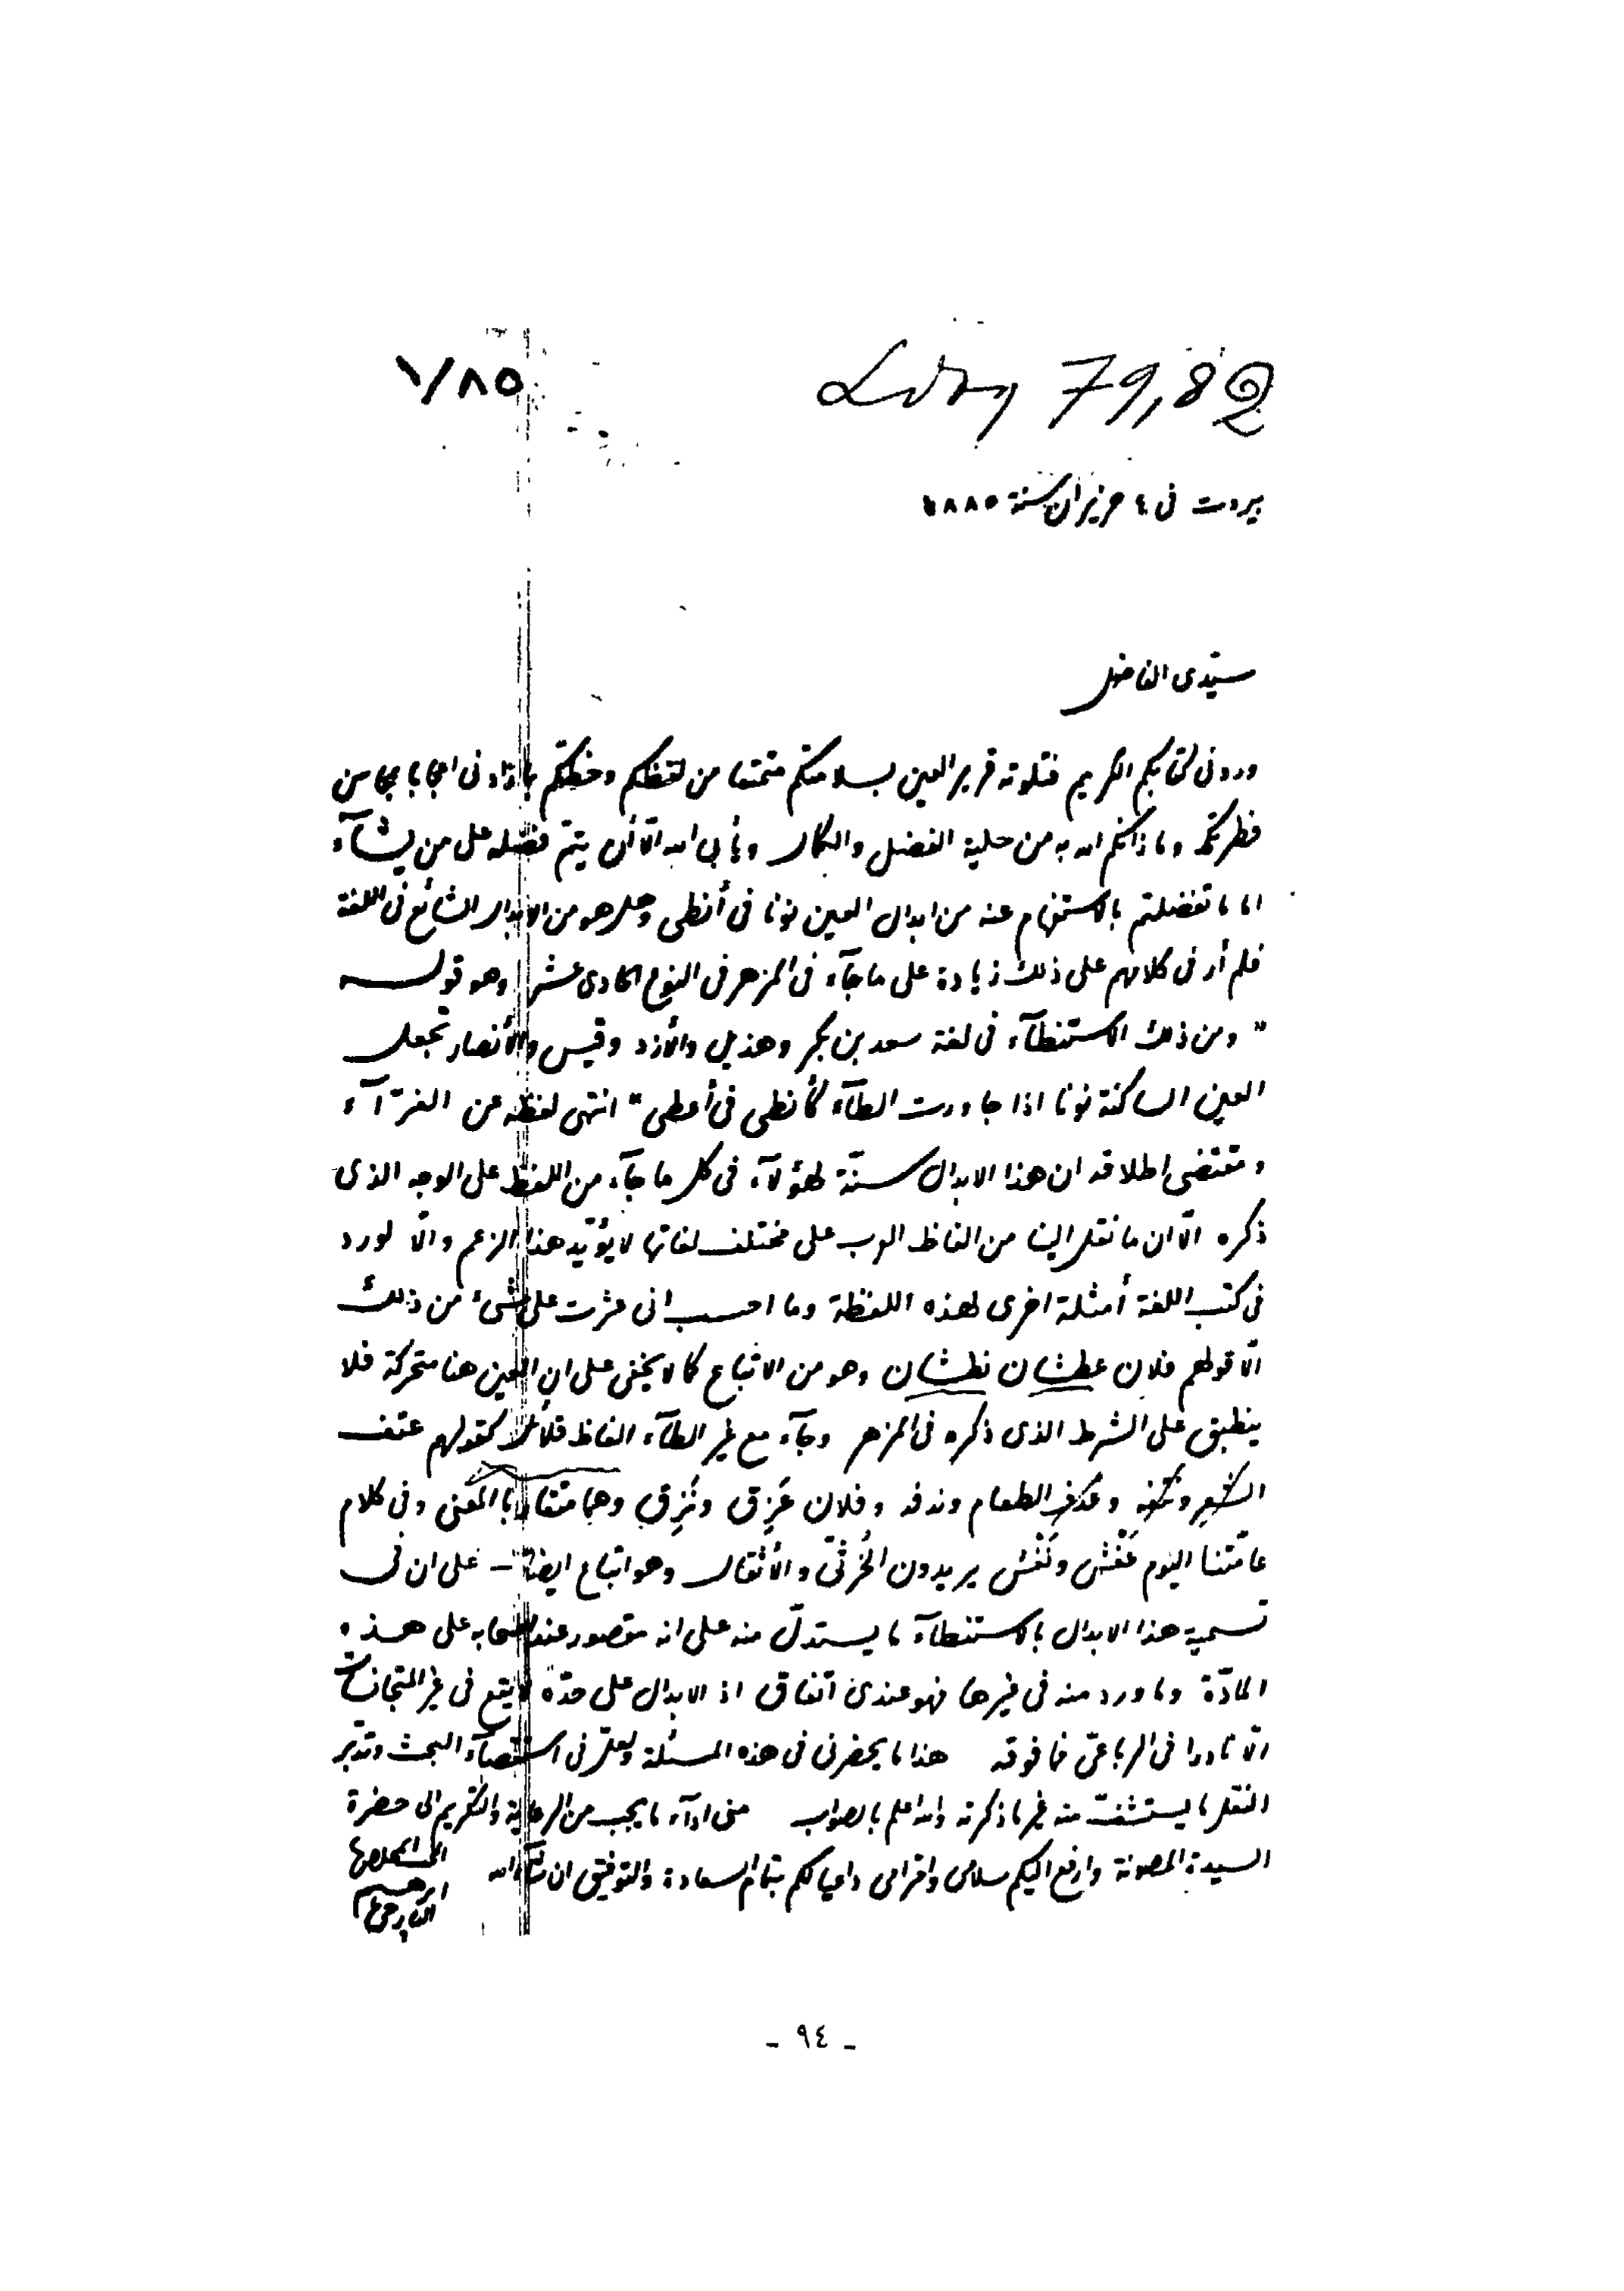 ١/٨٥
79,82
بيروت فى ٤ حزيران سنة ١٨٨٥
سيّدى الفاضل
وردنى كتابكم الكريم فتلوته قرير العين بسلامتكم متمتعا من لفظكم وخطكم بما زادنى اعجابا بمحاسن
فطرتكم وما زانكم الله به من حلية الفضل والكمال ويأبى الله الّا أن يتمّ فضله على من يشآء
اما ما تفضلتم بالاستفهام عنه من ابدال العين نونا فى أنطى وهل هو من الابدال الشائع فى اللغة
فلم أر فى كلامهم على ذلك زيادة على ما جآء فى المزهر فى النوع الحادى عشر وهو قوله
" ومن ذلك الاستنطآء فى لغة سعد بن بكر وهذيل والأزد وقيس والأنصار تجعل
العين الساكنة نونا اذا جاورت الطآء كأنطى فى أعطى" انتهى لفظه عن الفرّآء
ومقتضى اطلاقه ان هذا الابدال سنّة لهؤلآء فى كل ما جآء من اللفظ على الوجه الذى
ذكره الّا ان ما نقل الينا من الفاظ العرب على مختلف لغاتها لا يؤيّد هذا الزعم والّا لورد
فى كتب اللغة أمثلة اخرى لهذه اللفظة وما احسب انى عثرت على شىء من ذلك
الّا قولهم فلان عطشان نطشان وهو من الاتباع كما لا يخفى على ان العين هنا متحركة فلا
ينطبق على الشرط الذى ذكره فى المزهر وجآء مع غير الطآء الفاظ قلائل كقولهم عتف
الشعر ونتفه وعدف الطعام وندفه وفلان عَزِق ونَزِق وهما متقاربا المعنى وفى كلام
عامّتنا اليوم عَفْش ونَفْش يريدون الخُرثىّ والأثقال وهو اتباع ايضاً – على ان فى
تسمية هذا الابدال بالاستنطآء ما يستدلّ منه على انه مقصور عند اصحابه على هذه
المادّة وما ورد منه فى غيرها فهو عندى اتفاق اذ الابدال على حدّه لا يقع فى غير المتجانسات
الّا نادرا فى الرباعىّ فما فوقه هذا ما يحضرنى فى هذه المسئلة ولعلّ فى استقصآء البحث وتدبّر
النقل ما يستشفّ منه غير ما ذكرته والله اعلم بالصواب منى ادآء ما يجب من الرعاية والتكريم الى حضرة
السيدة المصونة وارفع اليكم سلامى واحترامى داعيا لكم بتمام السعادة والتوفيق ان شآء الله
ابرهيم
اليازجى
- ٩٤ -